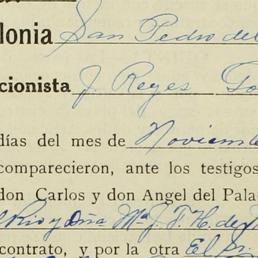 lonia San Pedro de
cionista J. Reyes
días del mes de Noviemb
comparecieron, ante los testigos
don Carlos y don Angel del Pala
Rio y Dña Ma. J. T. H. de
contrato, y por la otra El Sr.